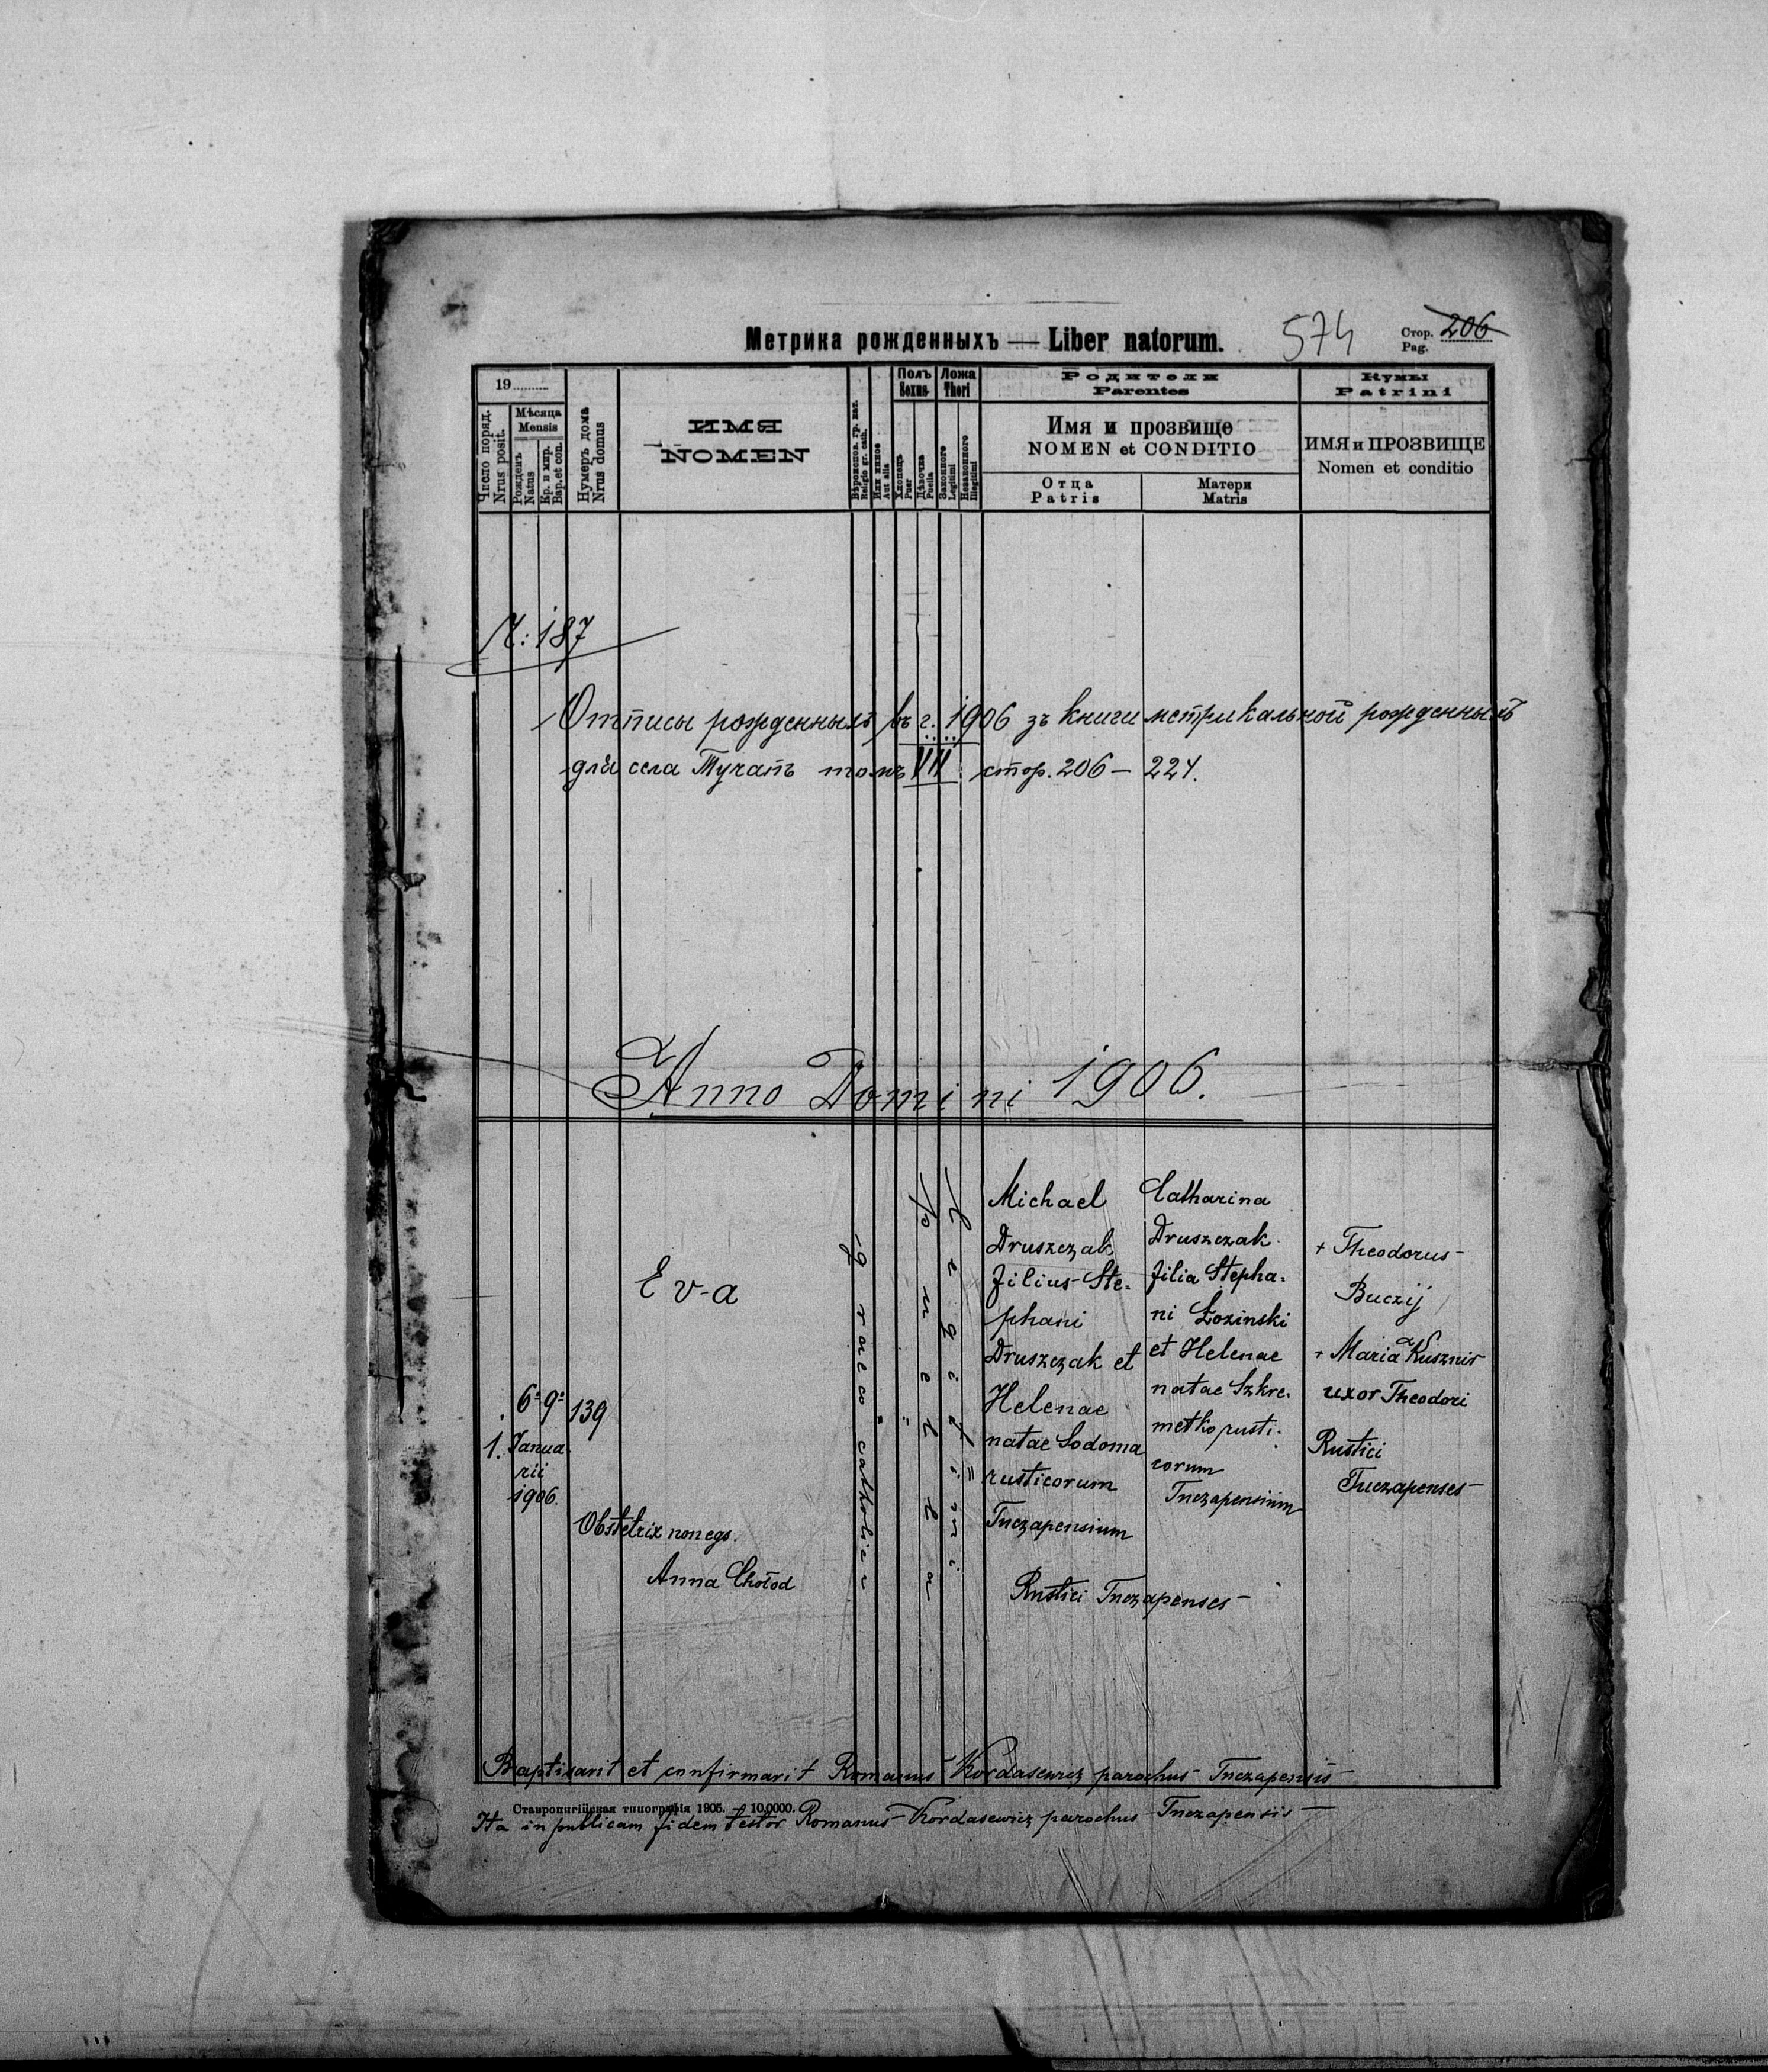 Метрика рожденныхъ — Liber natorum.
574
Стор. 206
Pag.
19
Число поряд.
Nrus posit.
Мѣсяца
Mensis
Рожденъ
Natus
Кр. и мир.
Bap. et con.
Нумеръ дома
Nrus domus
ИМЯ
NOMEN
Вѣроиспов. гр. кат.
Religio gr. cath.
Или инное
Aut alia
Полъ
Sexus
Хлопецъ
Puer
Дѣвочка
Puella
Ложа
Thori
Законного
Legitimi
Незаконного
Illegitimi
Родители
Parentes
Имя и прозвище
NOMEN et CONDITIO
Отца
Patris
Матери
Matris
Кумы
Patrini
ИМЯ и ПРОЗВИЩЕ
Nomen et conditio
Ч: 187
Отписы рожденныхъ въ г. 1906 зъ книги метрикальной рожденныхъ
для села Тучапъ томъ VII стор. 206 — 224.
Anno Domini 1906.
1.
6: 9:
Janua
rii
1906.
139
Eva
Obstetrix non egs.
Anna Chołod
graeco catholica
puella
Legitimi
Michael
Druszczak
filius Ste-
phani
Druszczak et
Helenae
natae Sodoma
rusticorum
Tuczapensium
Catharina
Druszczak
filia Stepha-
ni Łozinski
et Helenae
natae Szkre-
metko rusti-
corum
Tuczapensium
Rustici Tuczapenses
+ Theodorus
Buczij
+ Maria Kusznir
uxor Theodori
Rustici
Tuczapenses
Baptisavit et confirmavit Romanus Kordasewicz parochus Tuczapensis
Ставропигійская типографія 1905. — 10.0000.
Ita in publicam fidem testor Romanus Kordasewicz parochus Tuczapensis